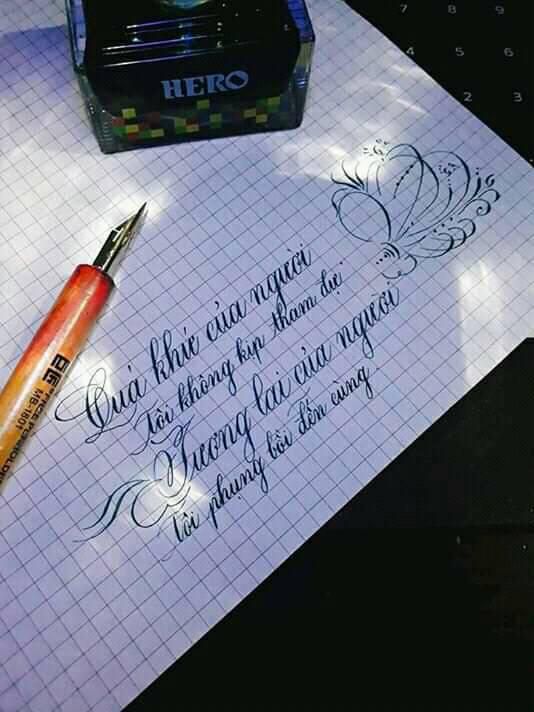 7 8 9
4 5 6
2 3
HERO
Quá khứ của người
Tôi không kịp tham dự
Tương lai của người
Tôi phụng bồi đến cùng
MB-1801